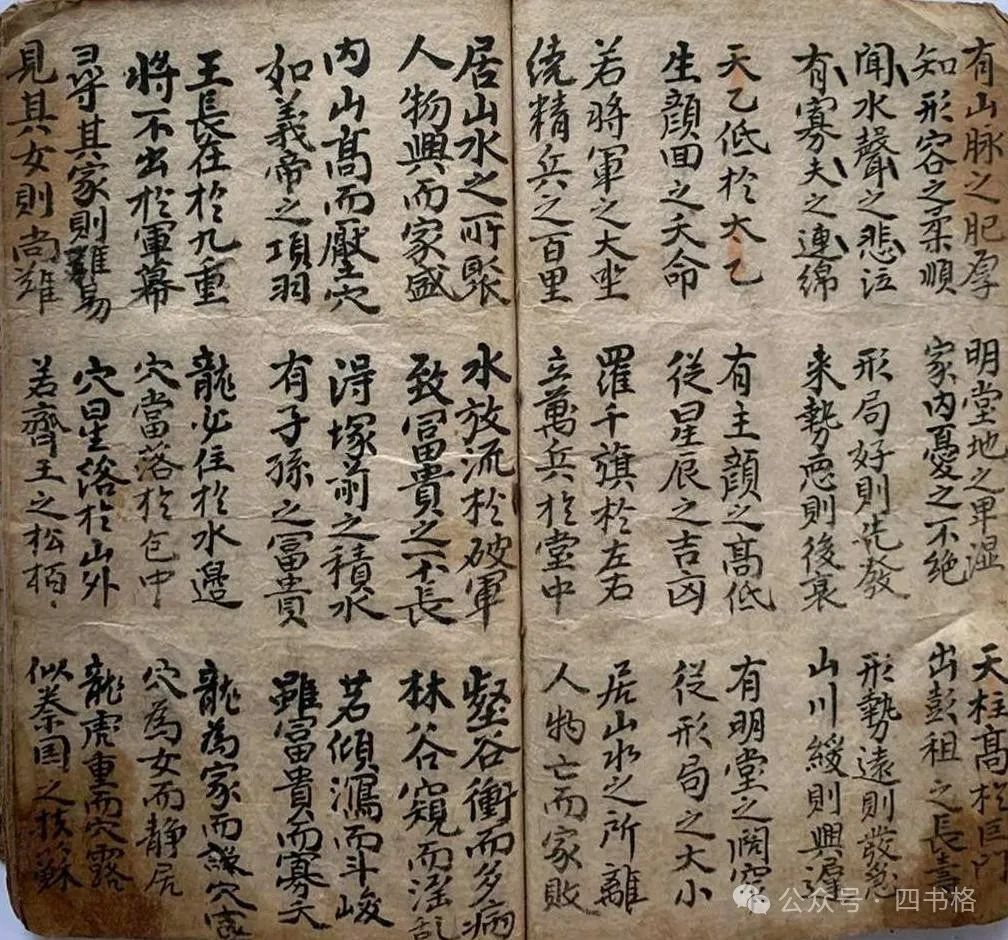 有山脉之肥厚
知形容之柔順
明堂地之卑湿
家内憂之不絶
天柱高於
出彭祖之長壽
聞水聲之悲泣
有寡夫之連綿
形局好則先發
来勢惡則後衰
形勢遠則發
山川緩則興遲
天乙低於太乙
生顔回之夭命
有主顔之高低
從星辰之吉凶
有明堂之闊窄
從形局之大小
若將軍之大坐
繞精兵之百里
羅千旗於左右
立萬兵於堂中
居山水之所離
人物亡而家敗
居山水之所聚
人物興而家盛
水放流於破軍
致冨貴之不長
壑谷衝而多病
林谷窺而淫乱
内山高而壓穴
如義帝之項羽
淂塚前之積水
有子孫之冨貴
若傾瀉而斗峻
雖冨貴而寡夭
王長在於九重
將不出於軍幕
龍必住於水邊
穴當落於包中
龍為家而穴
穴為女而静居
尋其家則雖易
見其女則尚難
穴星落於山外
若齊王之松栢
龍虎重而穴露
似秦国之扶蘇
公众号·四书格